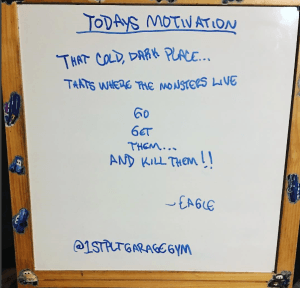 TODAYS MOTIVATION
THAT COLD, DARK PLACE...
THATS WHERE THE MONSTERS LIVE
GO
GET
THEM...
AND KILL THEM!!
~EAGLE
@1STPLTGARAGEGYM